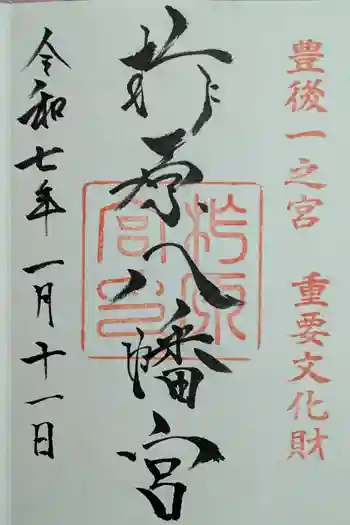 豊後一之宮　重要文化財
柞原八幡宮
柞原宮印
令和七年一月十一日